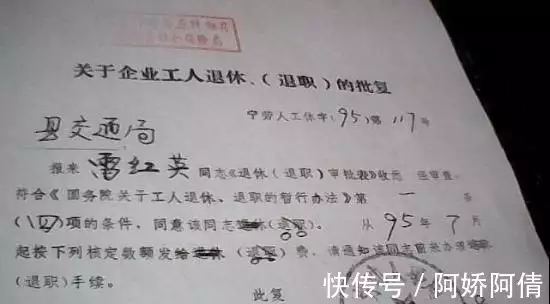 关于企业工人退休、(退职)的批复
宁劳人工休字(95)第117号
县交通局
报来雷红英同志《退休(退职)审批表》收悉 经审查,
符合《国务院关于工人退休、退职的暂行办法》第一条
(四)项的条件,同意该同志退休(退职)。从95年7月
起按下列核定数额发给退休(退职)费,请通知该同志
(退职)手续。
此复
快传号/阿娇阿倩